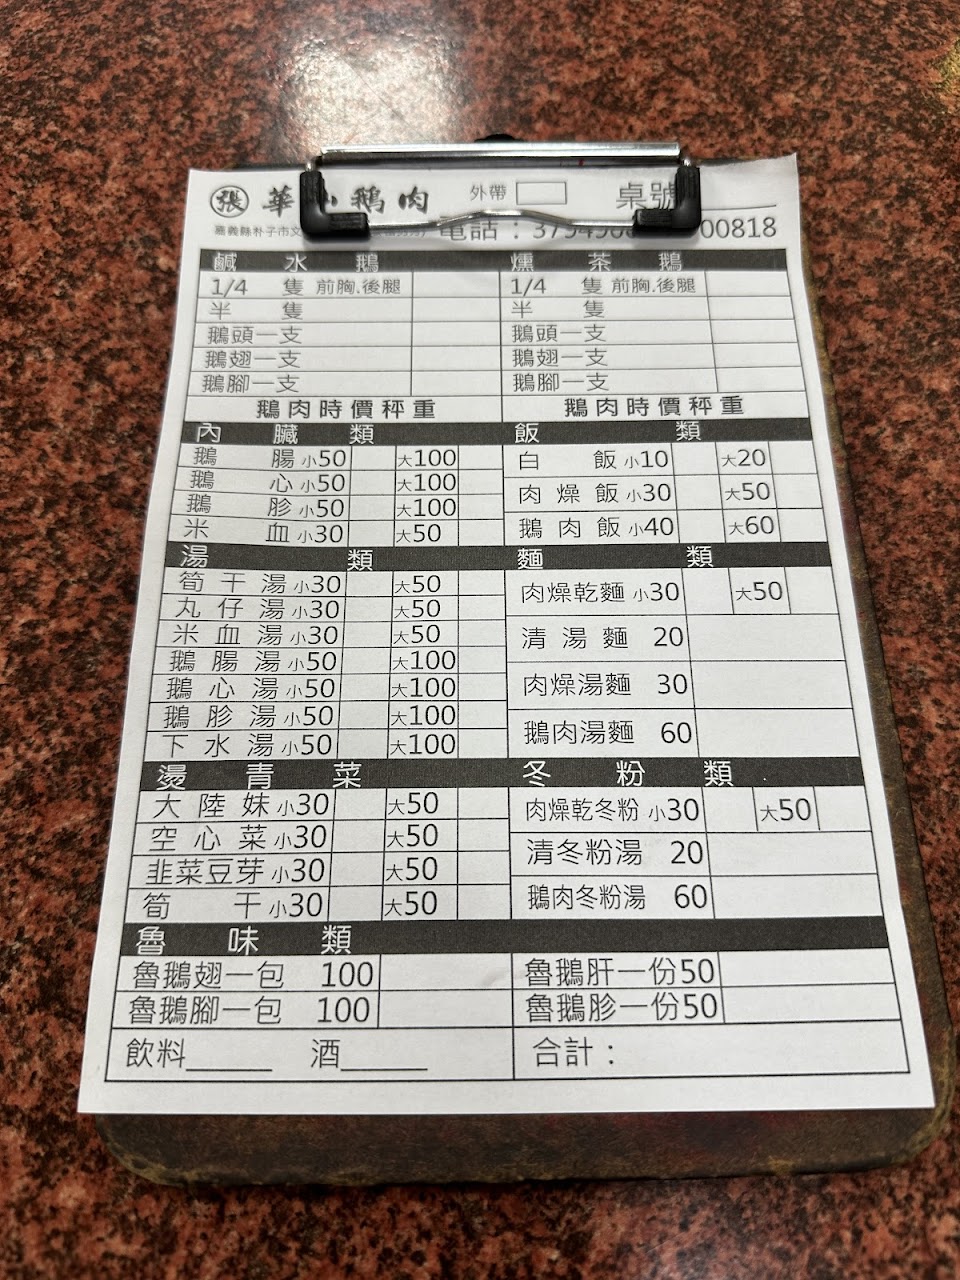 張 華 鵝肉 外帶 桌號
嘉義縣朴子市文 電話：37949 00818
鹹水鵝 燻茶鵝
1/4 隻 前胸.後腿 1/4 隻 前胸.後腿
半隻 半隻
鵝頭一支 鵝頭一支
鵝翅一支 鵝翅一支
鵝腳一支 鵝腳一支
鵝肉時價秤重 鵝肉時價秤重
內臟類
鵝腸 小50 大100
鵝心 小50 大100
鵝胗 小50 大100
米血 小30 大50
飯類
白飯 小10 大20
肉燥飯 小30 大50
鵝肉飯 小40 大60
湯類
筍干湯 小30 大50
丸仔湯 小30 大50
米血湯 小30 大50
鵝腸湯 小50 大100
鵝心湯 小50 大100
鵝胗湯 小50 大100
下水湯 小50 大100
麵類
肉燥乾麵 小30 大50
清湯麵 20
肉燥湯麵 30
鵝肉湯麵 60
燙青菜
大陸妹 小30 大50
空心菜 小30 大50
韭菜豆芽 小30 大50
筍干 小30 大50
冬粉類
肉燥乾冬粉 小30 大50
清冬粉湯 20
鵝肉冬粉湯 60
魯味類
魯鵝翅一包 100 魯鵝肝一份50
魯鵝腳一包 100 魯鵝胗一份50
飲料 酒 合計：